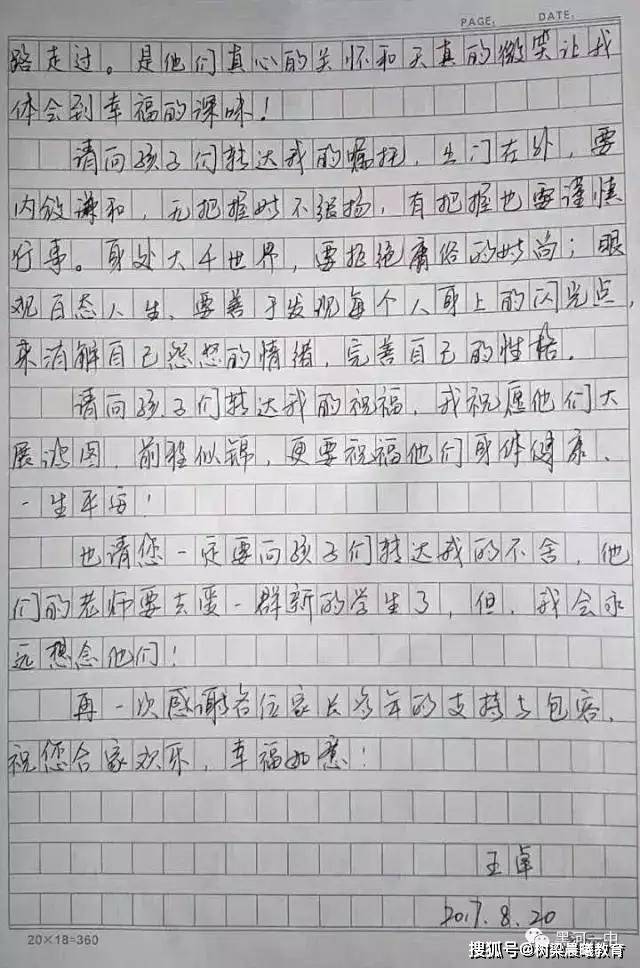 PAGE.     DATE.
路走过。是他们真心的关怀和天真的微笑让我
体会到幸福的深味！
请向孩子们转达我的嘱托，出门在外，要
内敛谦和，无把握时不张扬，有把握也要谨慎
行事。身处大千世界，要拒绝庸俗的时尚；眼
观百态人生，要善于发现每个人身上的闪光点，
来消解自己怨怼的情绪，完善自己的性格。
请向孩子们转达我的祝福，我祝愿他们大
展鸿图，前程似锦，更要祝福他们身体健康、
一生平安！
也请您一定要向孩子们转达我的不舍，他
们的老师要去爱一群新的学生了，但，我会永
远想念他们！
再一次感谢各位家长多年的支持与包容，
祝您合家欢乐，幸福如意！
王卓
2017.8.20
20×18=360
黑河一中
搜狐号@树梁晨曦教育